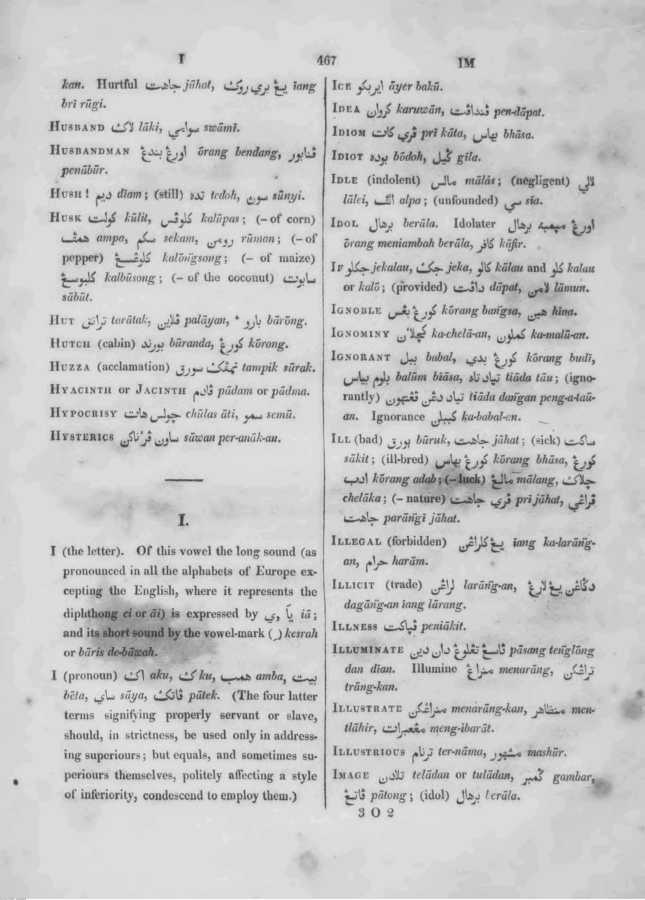 I 467 IM
kan. Hurtful جاهت jāhat, يڠ بري روݢي iang
bri rūgi.
HUSBAND لاكي lāki, سوامي swāmī.
HUSBANDMAN اورڠ بندڠ ōrang bendang, ڤنابور
penābūr.
HUSH! ديم dīam; (still) تده tedoh, سوڽي sūnyi.
HUSK كولت kūlit, كلوڤس kalūpas; (– of corn)
همڤ ampa, سكم sekam, رومن rūman; (– of
pepper) كلوڠسڠ kalōngsong; (– of maize)
كلبوسڠ kalbūsong; (– of the coconut) سابوت
sābūt.
HUT تراتق tarātak, ڤلاين palāyan, بارو bārōng.
HUTCH (cabin) بورند būranda, كورڠ kōrong.
HUZZA (acclamation) تمڤق سورق tampik sūrak.
HYACINTH or JACINTH ڤادم pādam or pādma.
HYPOCRISY چولس هات chūlas āti, سمو semū.
HYSTERICS ساون ڤرناكن sāwan per-anāk-an.
I.
I (the letter). Of this vowel the long sound (as
pronounced in all the alphabets of Europe ex-
cepting the English, where it represents the
diphthong ei or āi) is expressed by ي, يا iā;
and its short sound by the vowel-mark ( ِ) kesrah
or bāris de-bāwah.
I (pronoun) اكو aku, كو ku, همب amba, بيت
bēta, ساي sāya, ڤاتك pātek. (The four latter
terms signifying properly servant or slave,
should, in strictness, be used only in address-
ing superiours; but equals, and sometimes su-
periours themselves, politely affecting a style
of inferiority, condescend to employ them.)
ICE اير بكو āyer bakū.
IDEA كروان karuwān, ڤنداڤت pen-dāpat.
IDIOM ڤري كات pri kāta, بهاس bhāsa.
IDIOT بوده bōdoh, ݢيل gīla.
IDLE (indolent) مالس mālas; (negligent) لالي
lālei, الڤ alpa; (unfounded) سي sīa.
IDOL برهال berāla. Idolater اورڠ ميمبه برهال
ōrang meniambah berāla, كافر kāfir.
IF جكلو jekalau, جك jeka, كالو kālau and كلو kalau
or kalō; (provided) داڤت dāpat, لامن lāmun.
IGNOBLE كورڠ بڠس kōrang bangsa, هين hīna.
IGNOMINY كچلان ka-chelā-an, كملون ka-malū-an.
IGNORANT ببل babal, كورڠ بدي kōrang budī,
بلوم بياس balūm biāsa, تياد تاه tiāda tāu; (igno-
rantly) تياد دڠن ڤڠتهون tiāda dangan peng-a-taū-
an. Ignorance كببلن ka-babal-en.
ILL (bad) بورق būruk, جاهت jāhat; (sick) ساكت
sākit; (ill-bred) كورڠ بهاس kōrang bhāsa, كورڠ
ادب kōrang adab; (– luck) مالڠ mālang, چلاك
chelāka; (– nature) ڤري جاهت pri jāhat, ڤراڠي
جاهت parāngi jāhat.
ILLEGAL (forbidden) يڠ كلاراڠن iang ka-larāng-
an, حرام harām.
ILLICIT (trade) لراڠن larāng-an, دݢاڠن يڠ لارڠ
dagāng-an iang lārang.
ILLNESS ڤڽاكت peniākit.
ILLUMINATE ڤاسڠ تڠلوڠ دان دين pāsang tenglōng
dan dīan. Illumine منارڠ menarāng, تراڠكن
trāng-kan.
ILLUSTRATE منراڠكن menarāng-kan, منظاهر men-
tlāhir, مڠعبرات meng-ibarāt.
ILLUSTRIOUS ترنام ter-nāma, مشهور mashūr.
IMAGE تلادن telādan or tulādan, ݢمبر gambar,
ڤاتڠ pātong; (idol) برهال berāla.
3 O 2